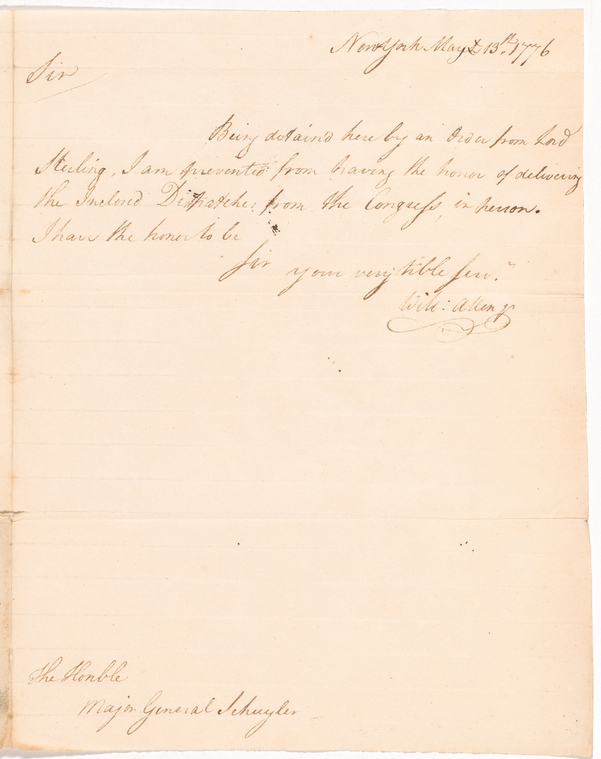 New York May 13th. 1776
Sir
Being detain'd here by an Order from Lord
Sterling, I am prevented from having the honor of delivering
the Inclosed Dispatches from the Congress, in person.
I have the honor to be
Sir
your very Hble Serv.t
Will: Allen
The Honble
Major General Schuyler